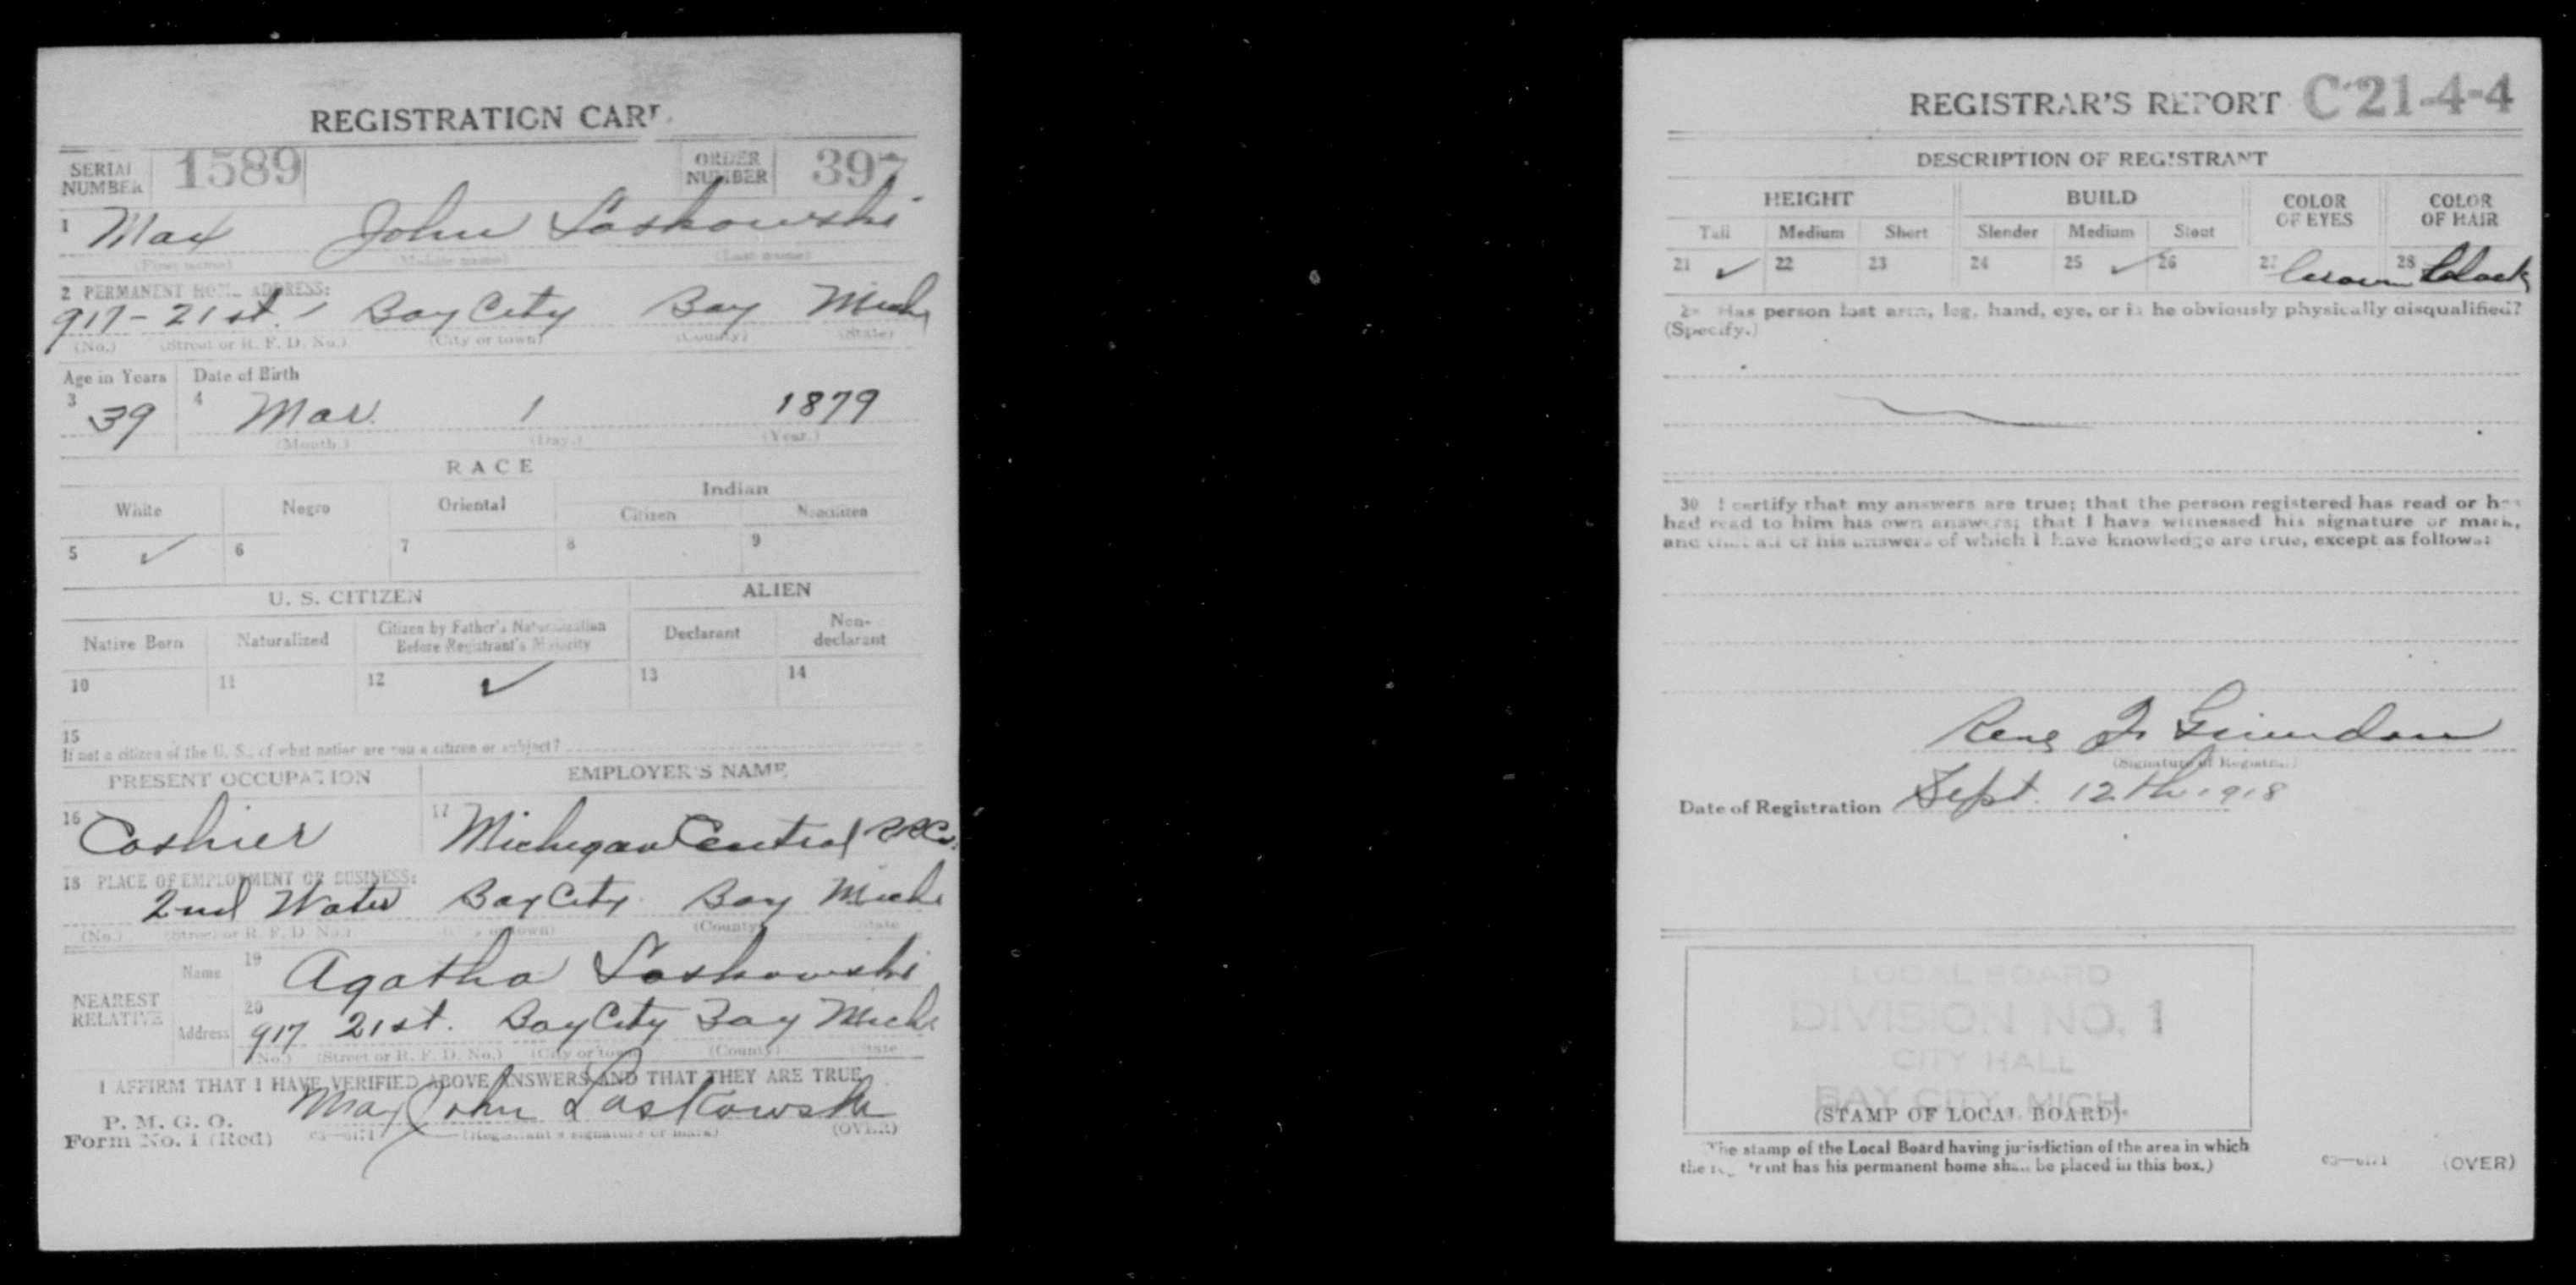 REGISTRATION CARD
SERIAL NUMBER 1589 ORDER NUMBER 397
1 Max John Laskowski
(First name) (Middle name) (Last name)
2 PERMANENT HOME ADDRESS:
917 - 21 st. Bay City Bay Mich
(No.) (Street or R. F. D. No.) (City or town) (County) (State)
Age in Years Date of Birth
3 39 4 Mar. 1 1879
(Month.) (Day.) (Year.)
RACE
White Negro Oriental Indian
Citizen Noncitizen
5 ✓ 6 7 8 9
U. S. CITIZEN ALIEN
Native Born Naturalized Citizen by Father's Naturalization Before Registrant's Majority Declarant Non-declarant
10 11 12 ✓ 13 14
15
If not a citizen of the U. S., of what nation are you a citizen or subject?
PRESENT OCCUPATION EMPLOYER'S NAME
16 Cashier 17 Michigan Central RR Co.
18 PLACE OF EMPLOYMENT OR BUSINESS:
2nd Water Bay City Bay Mich
(No.) (Street or R. F. D. No.) (City or town) (County) (State)
NEAREST RELATIVE
Name 19 Agatha Laskowski
Address 20 917 21st. Bay City Bay Mich
(No.) (Street or R. F. D. No.) (City or town) (County) (State)
I AFFIRM THAT I HAVE VERIFIED ABOVE ANSWERS AND THAT THEY ARE TRUE
P. M. G. O.
Form No. 1 (Red) Max John Laskowski
(Registrant's signature or mark) (OVER)
REGISTRAR'S REPORT C 21-4-4
DESCRIPTION OF REGISTRANT
HEIGHT BUILD COLOR OF EYES COLOR OF HAIR
Tall Medium Short Slender Medium Stout
21 ✓ 22 23 24 25 ✓ 26 27 brown 28 black
29 Has person lost arm, leg, hand, eye, or is he obviously physically disqualified?
(Specify.)
30 I certify that my answers are true; that the person registered has read or has
had read to him his own answers; that I have witnessed his signature or mark,
and that all of his answers of which I have knowledge are true, except as follows:
(Signature of Registrar)
Date of Registration Sept. 12th 1918
LOCAL BOARD
DIVISION NO. 1
CITY HALL
BAY CITY, MICH.
(STAMP OF LOCAL BOARD)
(The stamp of the Local Board having jurisdiction of the area in which
the registrant has his permanent home shall be placed in this box.)
(OVER)